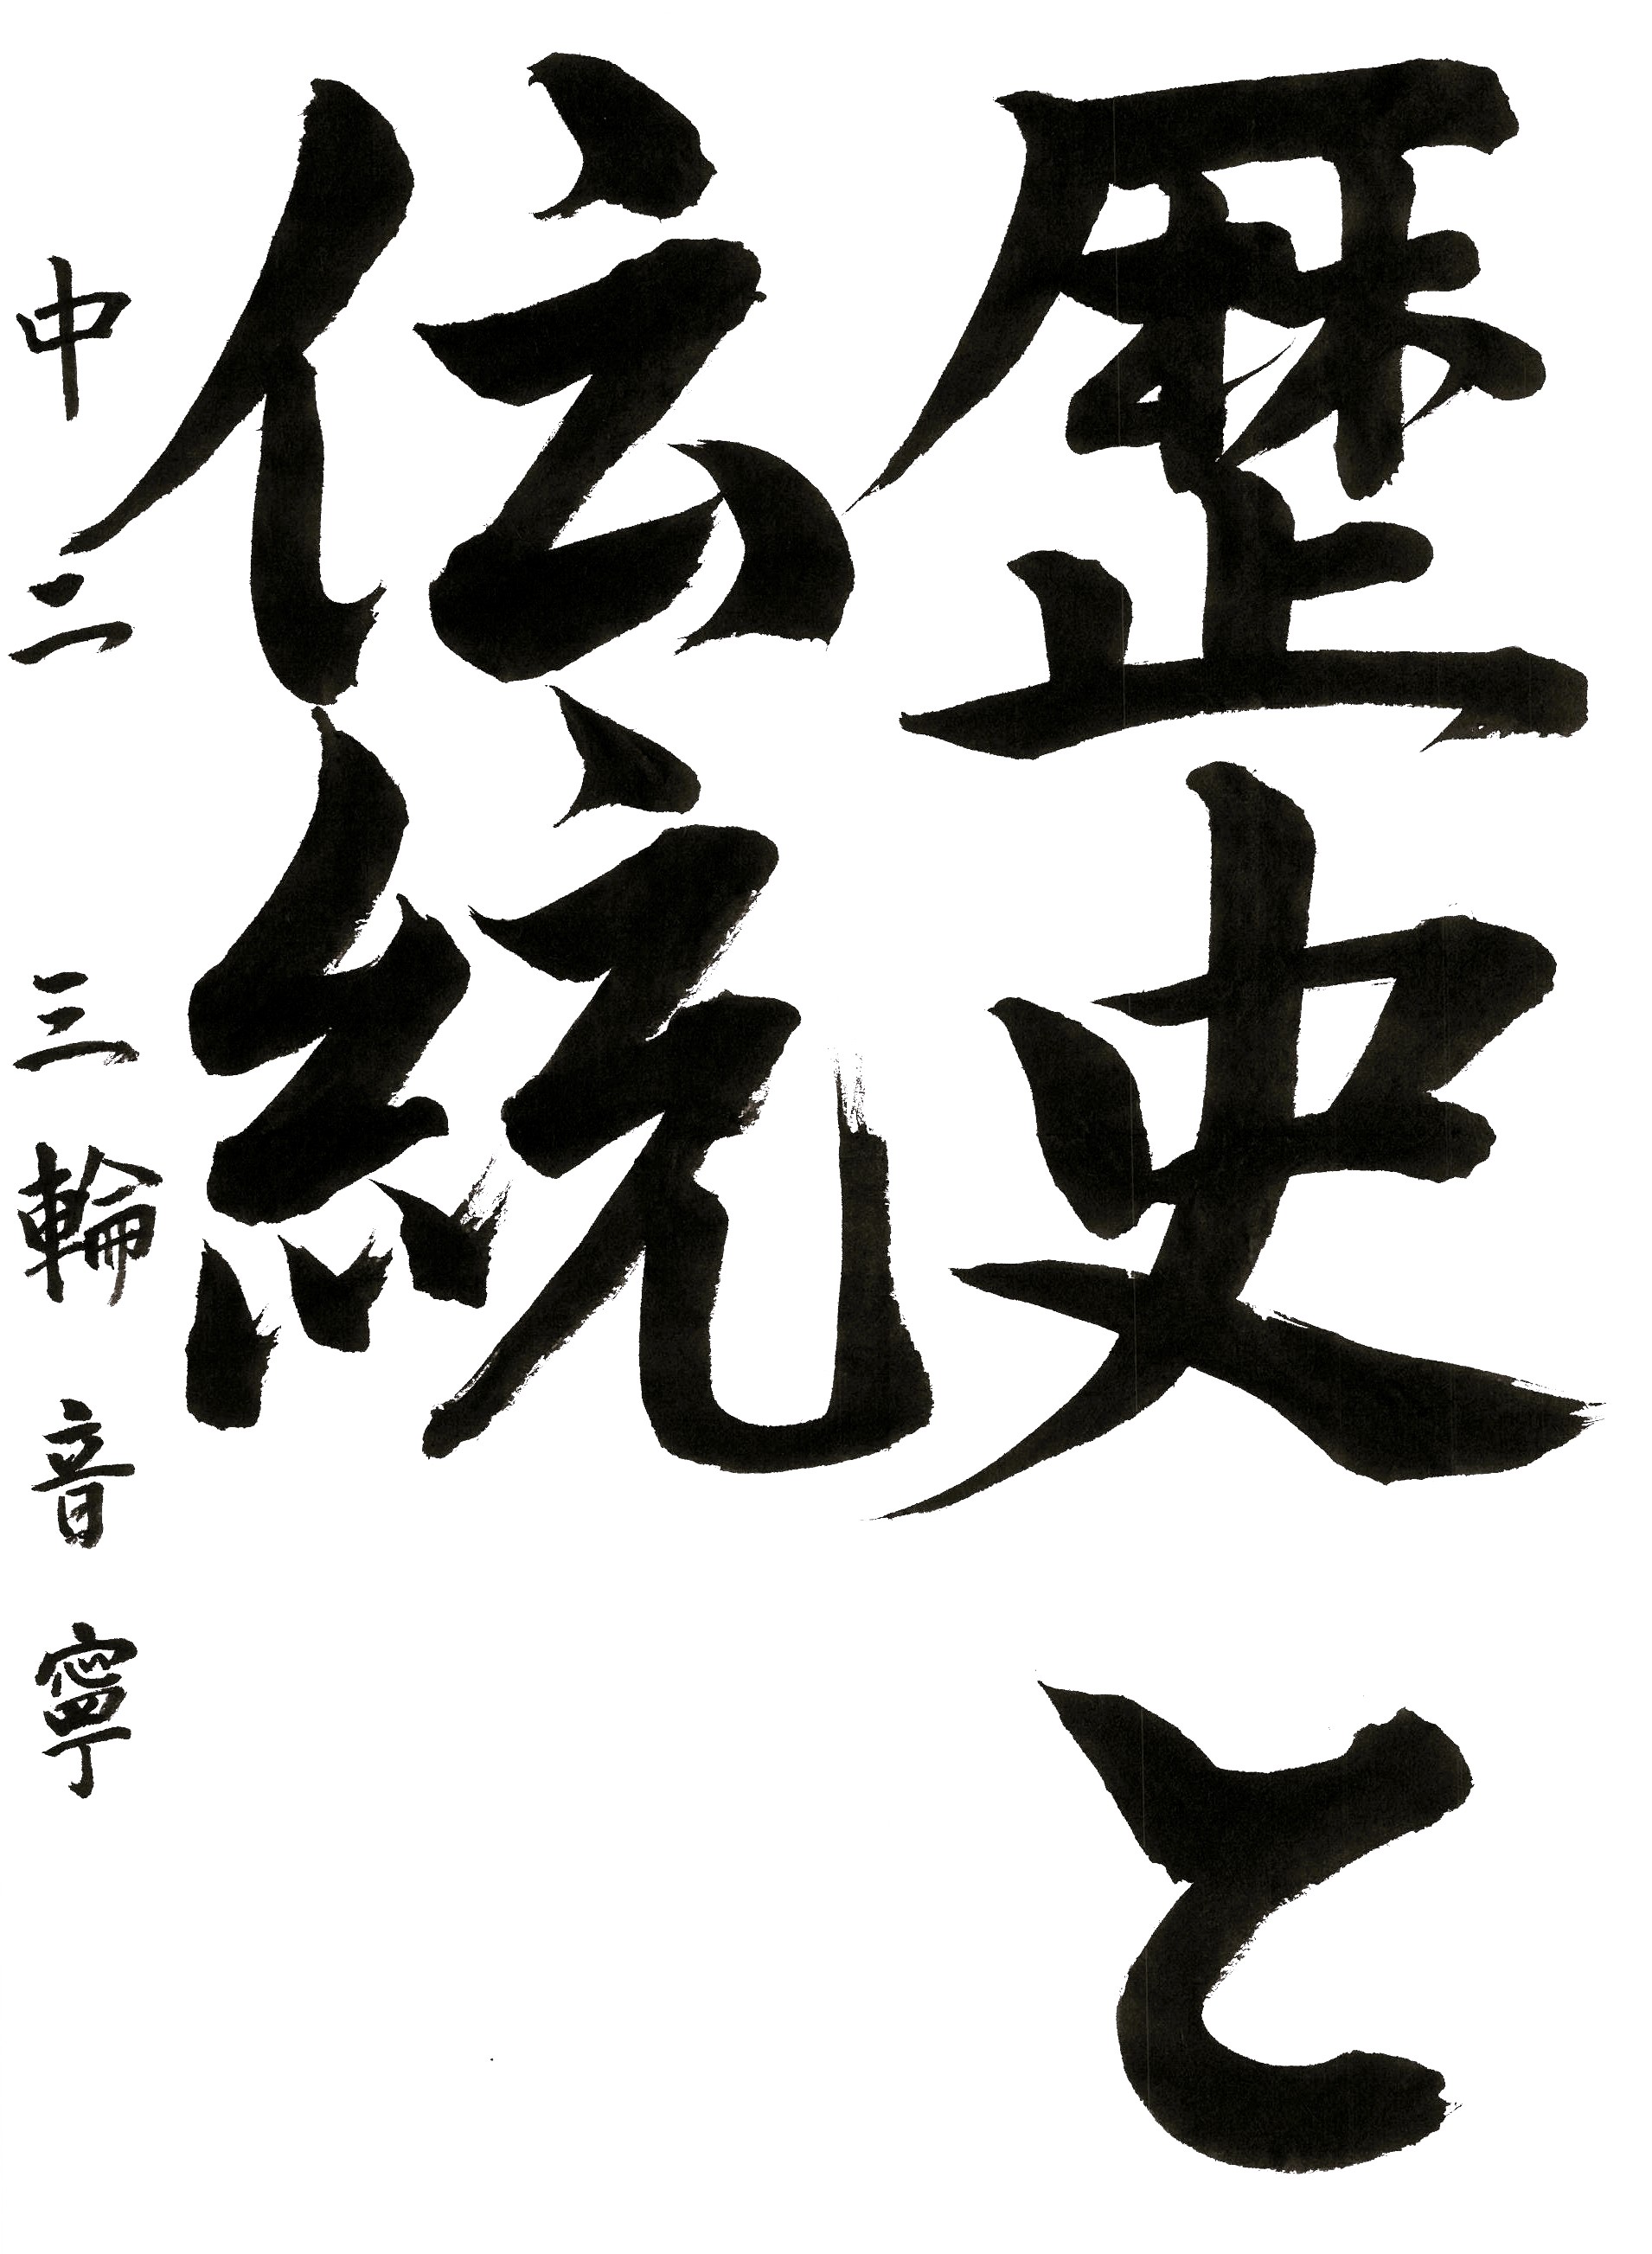 歴史と
伝統
中二 三輪音寧